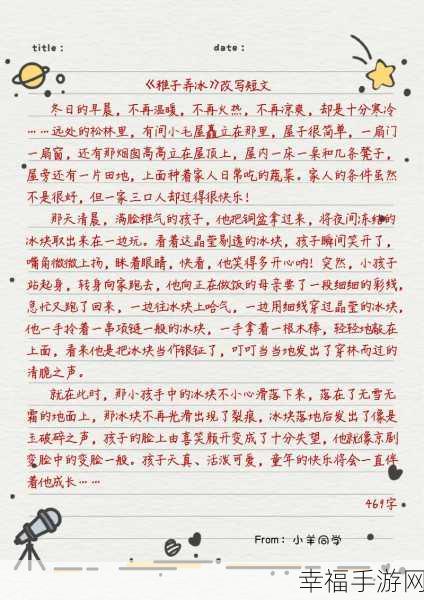 title：
date：
《稚子弄冰》改写短文
冬日的早晨，不再温暖，不再火热，不再凉爽，却是十分寒冷
……远处的松林里，有间小毛屋矗立在那里，屋子很简单，一扇门
一扇窗，还有那烟囱高高立在屋顶上，屋内一床一桌和几条凳子，
屋旁还有一片田地，上面种着家人日常吃的蔬菜。家人的条件虽然
不是很好，但一家三口人却过得很快乐！
那天清晨，满脸稚气的孩子，他把铜盆拿过来，将夜间冻结的
冰块取出来在一边玩。看着这晶莹剔透的冰块，孩子瞬间笑开了，
嘴角微微上扬，眯着眼睛，快看，他笑得多开心呐！突然，小孩子
站起身，转身向家跑去，他向正在做饭的母亲要了一段细细的彩线，
急忙又跑了回来，一边往冰块上哈气，一边用细线穿过晶莹的冰块，
他一手拎着一串项链一般的冰块，一手拿着一根木棒，轻轻地敲在
上面，看来他是把冰块当作银钲了，叮叮当当地发出了穿林而过的
清脆之声。
就在此时，那小孩手中的冰块不小心滑落下来，落在了无雪无
霜的地面上，那冰块不再光滑出现了裂痕，冰块落地后发出了像是
玉破碎之声，孩子的脸上由喜笑颜开变成了十分失望，他就像京剧
变脸中的变脸一般。孩子天真、活泼可爱，童年的快乐将会一直伴
着他成长……
469字
From：小羊同学
幸福手游网